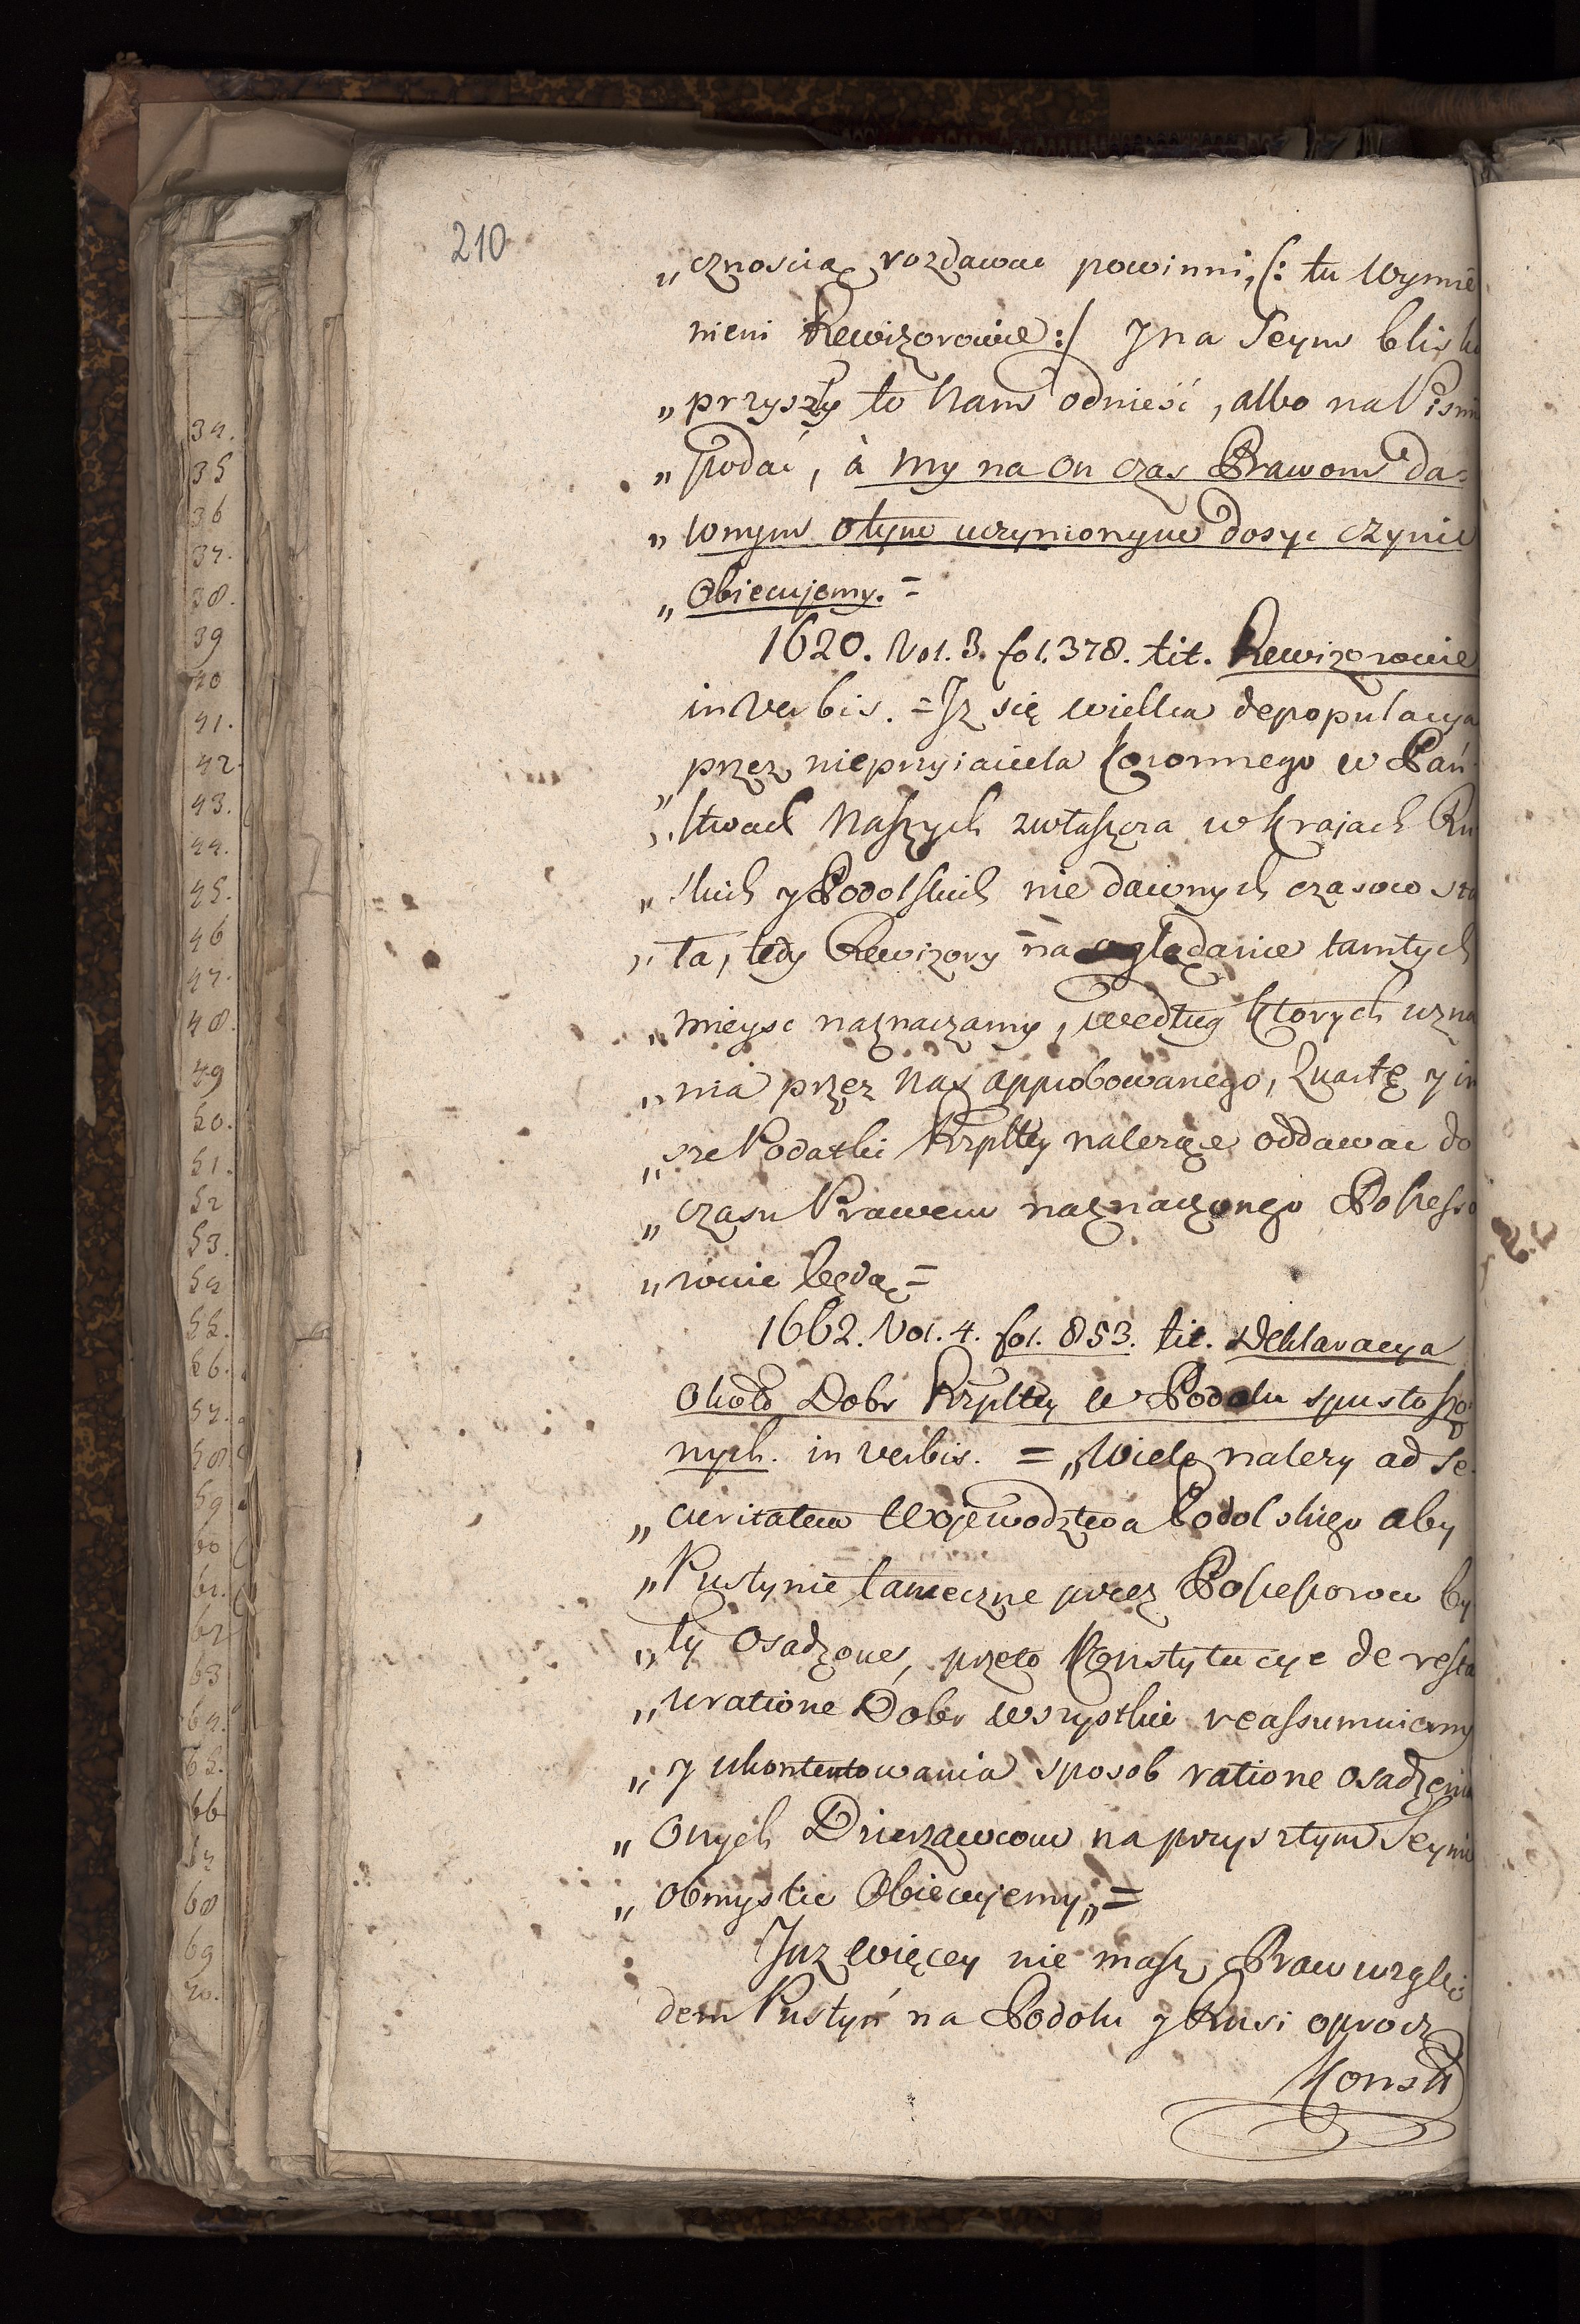 210
„cznoscią rozdawac powinni, (: tu Wymie
nieni Rewizorowie :/ J na Seym blisko
„przyszły to Nam odnieść, albo na Pismie
„podać, à my na on czas Prawom da=
„wnym otym uczynionym dosyc czynic
„Obiecujemy. =
1620. Vol. 3. fol. 378. tit. Rewizorowie
in Verbis. = Jz się wielka depopulacya
„przez nieprzyiaciela Koronnego w Pań
„stwach Naszych zwłaszcza w Krajach Ru
„skich y Podolskich nie dawnych czasow sta
„ła, tedy Rewizory na oglądanie tamtych
„mieysc naznaczamy, według ktorych uzna
„nia przez Nas approbowanego, Kwartę y in
„sze Podatki Rzpltey nalezące oddawac do
„czasu Prawem naznaczonego Possesso
„rowie będą =
1662. Vol. 4. fol. 853. tit. Deklaracya
około Dobr Rzpltey w Podolu spustoszo
nych. in verbis. = „Wiele nalezy ad se
„curitatem Wojewodztwa Podolskiego aby
„Pustynie tameczne przez Possessorow by
„ły Osadzone, przeto Konstytucye de resta
„uratione Dobr wszystkie reassumuiemy
„y ukontentowania sposob ratione osadzenia
„Onych Dzierzawcow na przyszłym Seymie
„obmyslic Obiecujemy„ =
Juz więcey nie masz Praw wzglę:
dem Pustyń na Podolu y Rusi oprocz
Konsti
34.
35
36
37.
38.
39
40
41.
42.
43.
44.
45.
46
47.
48.
49
50.
51.
52
53.
54
55.
56.
57.
58.
59
60
61.
62
63
64.
65.
66
67
68
69
70.